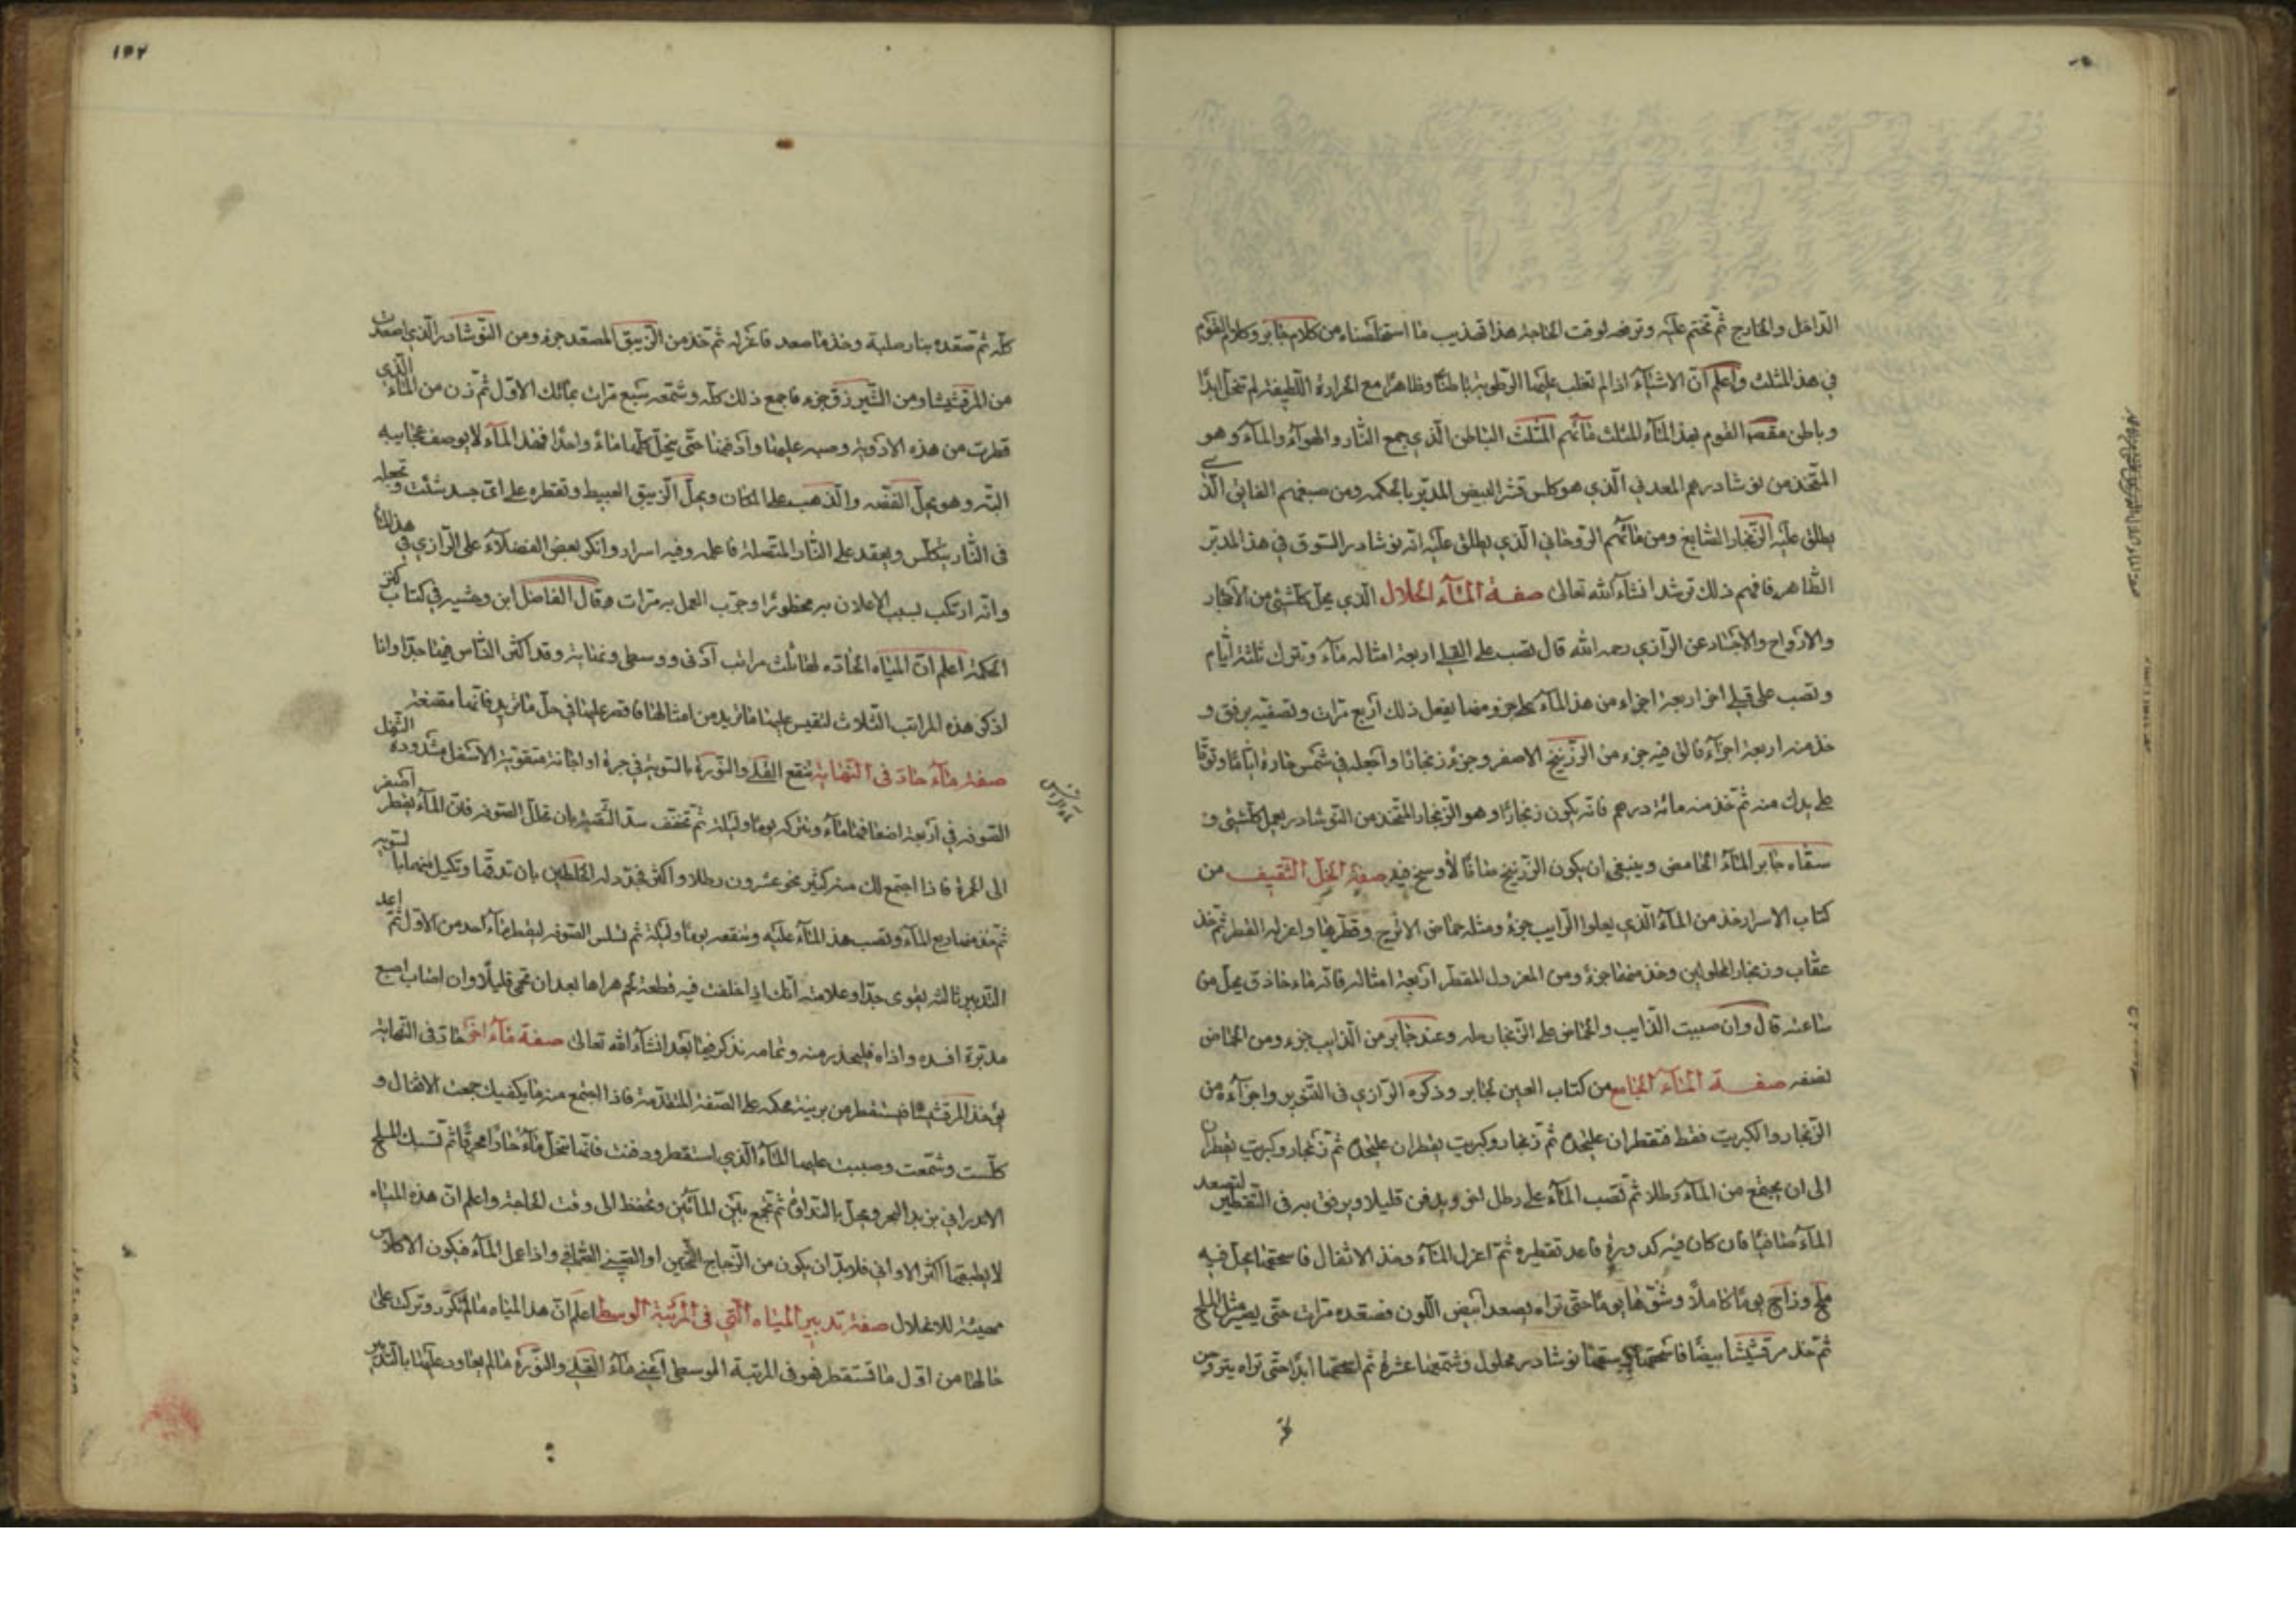 الداخل والخارج ثم تختم عليه وترفعه لوقت الحاجة هذا تهذيب ما استخلصناه من كلام جابر وكلام القوم
في هذا المثلث واعلم ان الاشياء اذا لم تغلب عليها الرطوبة باطنا وظاهرا مع الحرارة اللطيفة لم تنحل ابدا
وباطن مقصد القوم بهذا الماء المثلث مائهم المثلث الباطن الذي جمع النار والهواء والماء وهو
المتخذ من نوشادرهم المعدني الذي هو كلس قشر البيض المدبر بالحكمة ومن صبغهم الفايق الذي
يطلق عليه الزنجار الشايع ومن مائهم الروحاني الذي يطلق عليه انه نوشادر السوق في هذا المدبر
الظاهر فافهم ذلك ترشد انشاء الله تعالى صفة الماء الحلال الذي يحل كل شئ من الاحجار
والارواح والاجساد عن الرازي رحمه الله قال تصب على القلي اربعة امثاله ماء وتترك ثلثة ايام
وتصب على قلي اخر اربعة اجزاء من هذا الماء كل جزو منها يفعل ذلك اربع مرات وتصفيه برفق و
خذ منه اربعة اجزاء فالق فيه جزء من الزرنيخ الاصفر وجزء زنجارا واجعله في شمس حارة اياما وتوقا
على يدك منه ثم خذ منه مائة درهم فانه يكون زنجارا وهو الزنجار المتخذ من النوشادر يعمل كل شئ و
سماه جابر الماء الحامض وينبغي ان يكون الزرنيخ صافا لا وسخ فيه صفة الخل الثقيف من
كتاب الاسرار خذ من الماء الذي يعلوا الرايب جزء ومثله حماض الاترج وقطرها واعزله القطر ثم خذ
عقاب وزنجار المحلولين وخذ منهما جزء ومن المعزول المقطر اربعة امثاله فانه ماء حاذق يحل من
ساعته قال وان صببت الذايب والحماض على الزنجار حله وعند جابر من الذايب جزء ومن الحماض
نصفه صفة الماء الجامع من كتاب العين لجابر وذكره الرازي في التنوير واجزاءه من
الزنجار والكبريت فقط فتقطران عليحدة ثم زنجار وكبريت يقطران عليحدة ثم زنجار وكبريت يقطران
الى ان يجتمع من الماء رطلا ثم تصب الماء على رطل اخر ويدفن قليلا ويرفق به في التقطير لتصعد
الماء صافيا فان كان فيه كدورة فاعد تقطيره ثم اعزل الماء وخذ الاثفال فاسحقها بخل فيه
ملح وزاج يوما كاملا وشوها يوما حتى تراه يصعد ابيض اللون فصعده مرات حتى يصير مثل الملح
ثم خذ مرقشيشا بيضا فاسحقها نوشادر محلول وشمعها عشرة ثم اسحقها ابدا حتى تراه يتروحن
١٥٢
كله ثم صعده بنار صلبة وخذ ما صعد فاعزله ثم خذ من الزيبق المصعد جزء ومن النوشادر الذي اصعدت
من المرقشيشا ومن الشيرزق جزء فاجمع ذلك كله وشمعه سبع مرات بمائك الاول ثم زن من الماء الذي
قطرت من هذه الادوية وصبه عليها وادفنها حتى ينحل كلها ماء واحدا فهذا الماء لا يوصف عجايبه
البته وهو يحل الفضة والذهب على المكان ويحل الزيبق العبيط وتقطره على اى جسد شئت وتجعله
في النار يتكلس ويعقد على النار المتصلة فاعلمه وفيه اسرار وانكر بعض الفضلاء على الرازي في هذا
وانه ارتكب لسبب الاعلان به محظورا وجرب العمل به مرات وقال الفاضل ابن وحشيه في كتاب كنز
الحكمة اعلم ان المياه الحاده لها ثلث مراتب ادنى ووسطى ونهاية وقد اكثر الناس فيها جدا وانا
اذكر هذه المراتب الثلاث لتقيس عليها ما تريد من امثالها فاقصر عليها في حل ما تريد فانها مقنعة
صفة ماء حاد في النهاية تنقع القلي والنورة بالسوية في جرة او اجانة مثقوبة الاسفل مشدودة
الصوفه في اربعة اضعافهما ماء وتتركه يوما وليلة ثم تخفف سد الثقبة بان تخلل الصوفه فان الماء يقطر
الى الجرة فاذا اجتمع لك منه كثير نحو عشرون رطلا واكثر فجدد له اخلاطين بان تدقها وتكيل منهما بالسويه
ثم خذ منه اربع الماء وتصب هذا الماء عليه وتنقعه يوما وليلة ثم تسلس الصوفه ليقطر ماء احد من الاول ثم اعد
التدبير ثالثه يقوى جدا وعلامته انك اذا خلفت فيه قطعة لحم هراها بعد ان تحمى قليلا وان اصاب اصبع
مدبرة افسده واذاه فليحذر منه وتمامه نذكر فيما بعد انشاء الله تعالى صفة ماء اخر حاد في النهاية
يؤخذ المرقشيشا فيستقطر من برنية محكمة على الصفة المتقدمة فاذا اجتمع منه ما يكفيك جمعت الاثفال و
كلست وشمعت وصببت عليها الماء الذي استقطر ودفنت فانها تنحل ماء حادا محرقا ثم تسبك الملح
الاندراني بزبد البحر ويحل بالنداوة ثم تجمع بين المائين وتحفظ الى وقت الحاجة واعلم ان هذه المياه
لا يطيقها اكثر الاواني فلا بد ان يكون من الزجاج الثخين او الصيني الصافي واذا عمل الماء فيكون الاكلاس
مهيئة للانحلال صفة تدبير المياه التي في المرتبة الوسطى اعلم ان هذا المياه ما لم تكرر وتركت على
حالها من اول ما تستقطر فهو في المرتبة الوسطى اعني ماء القلي والنورة ما لم يعاود عليها بالتدبير